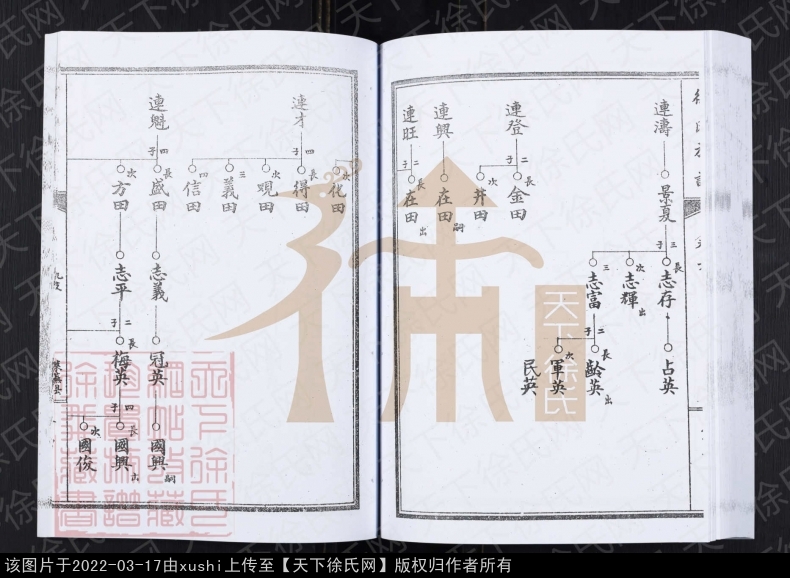 連濤
景夏
三子
長 志存
次 志輝 出
三 志富
占英
二子
長 齡英 出
次 軍英
民英
連登
二子
長 金田
次 井田
連興
在田 嗣
連旺
二子
長 在田 出
次 化田
連才
四子
長 得田
次 观田
三 義田
四 信田
連魁
四子
長 盛田
次 方田
志義
志平
冠英
二子
長 梅英
國興 嗣
四子
長 國興 出
次 國俊
天下徐氏
天下徐氏网
该图片于2022-03-17由xushi上传至【天下徐氏网】版权归作者所有